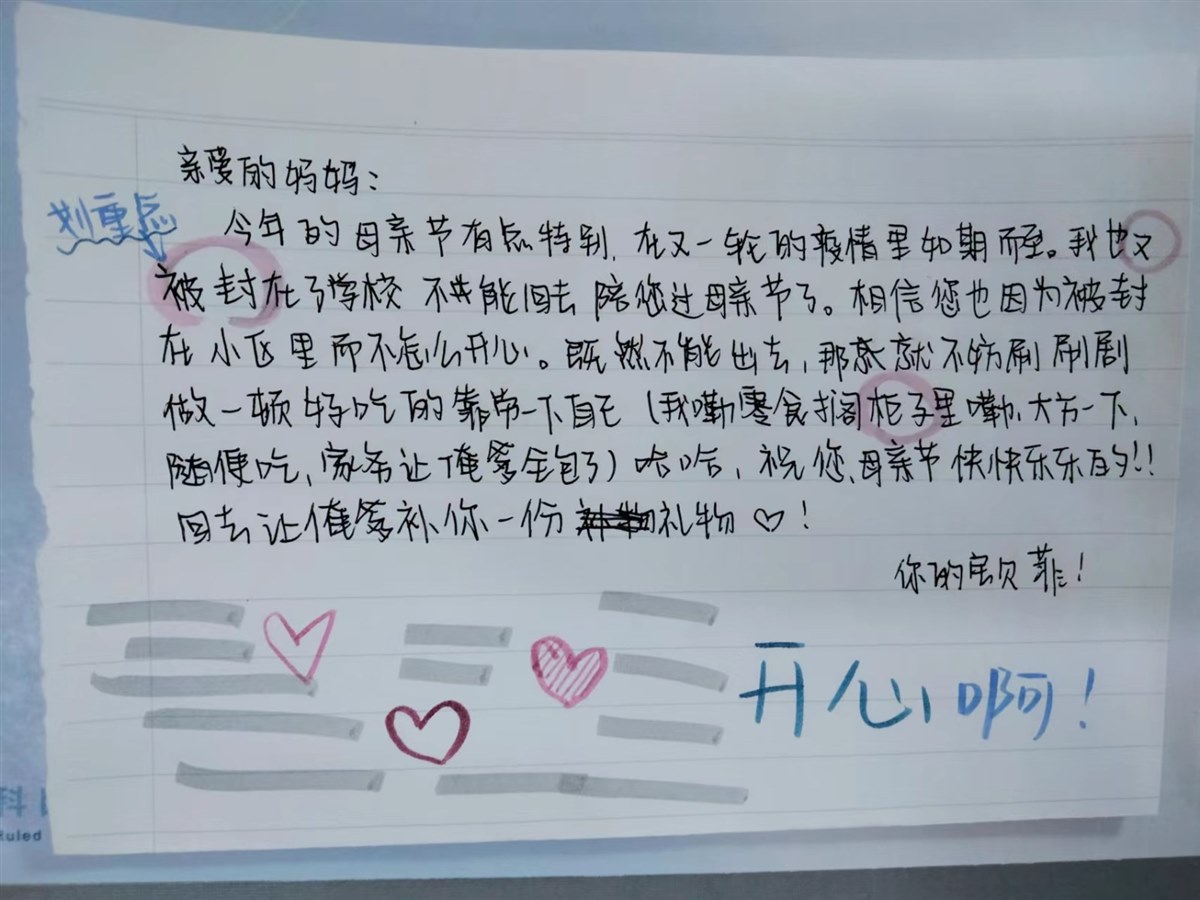 亲爱的妈妈:
划重点
今年的母亲节有点特别,在又一轮的疫情里如期而至。我也又
被封在了学校 不能回去陪您过母亲节了。相信您也因为被封
在小区里而不怎么开心。既然不能出去,那就不妨刷刷剧
做一顿好吃的犒劳一下自己(我嘞零食搁柜子里嘞,大方一下,
随便吃,家务让俺爹全包了)哈哈,祝您母亲节快快乐乐的!!
回去让俺爹补你一份礼物♡!
你的宝贝菲!
开心啊!
科
Ruled